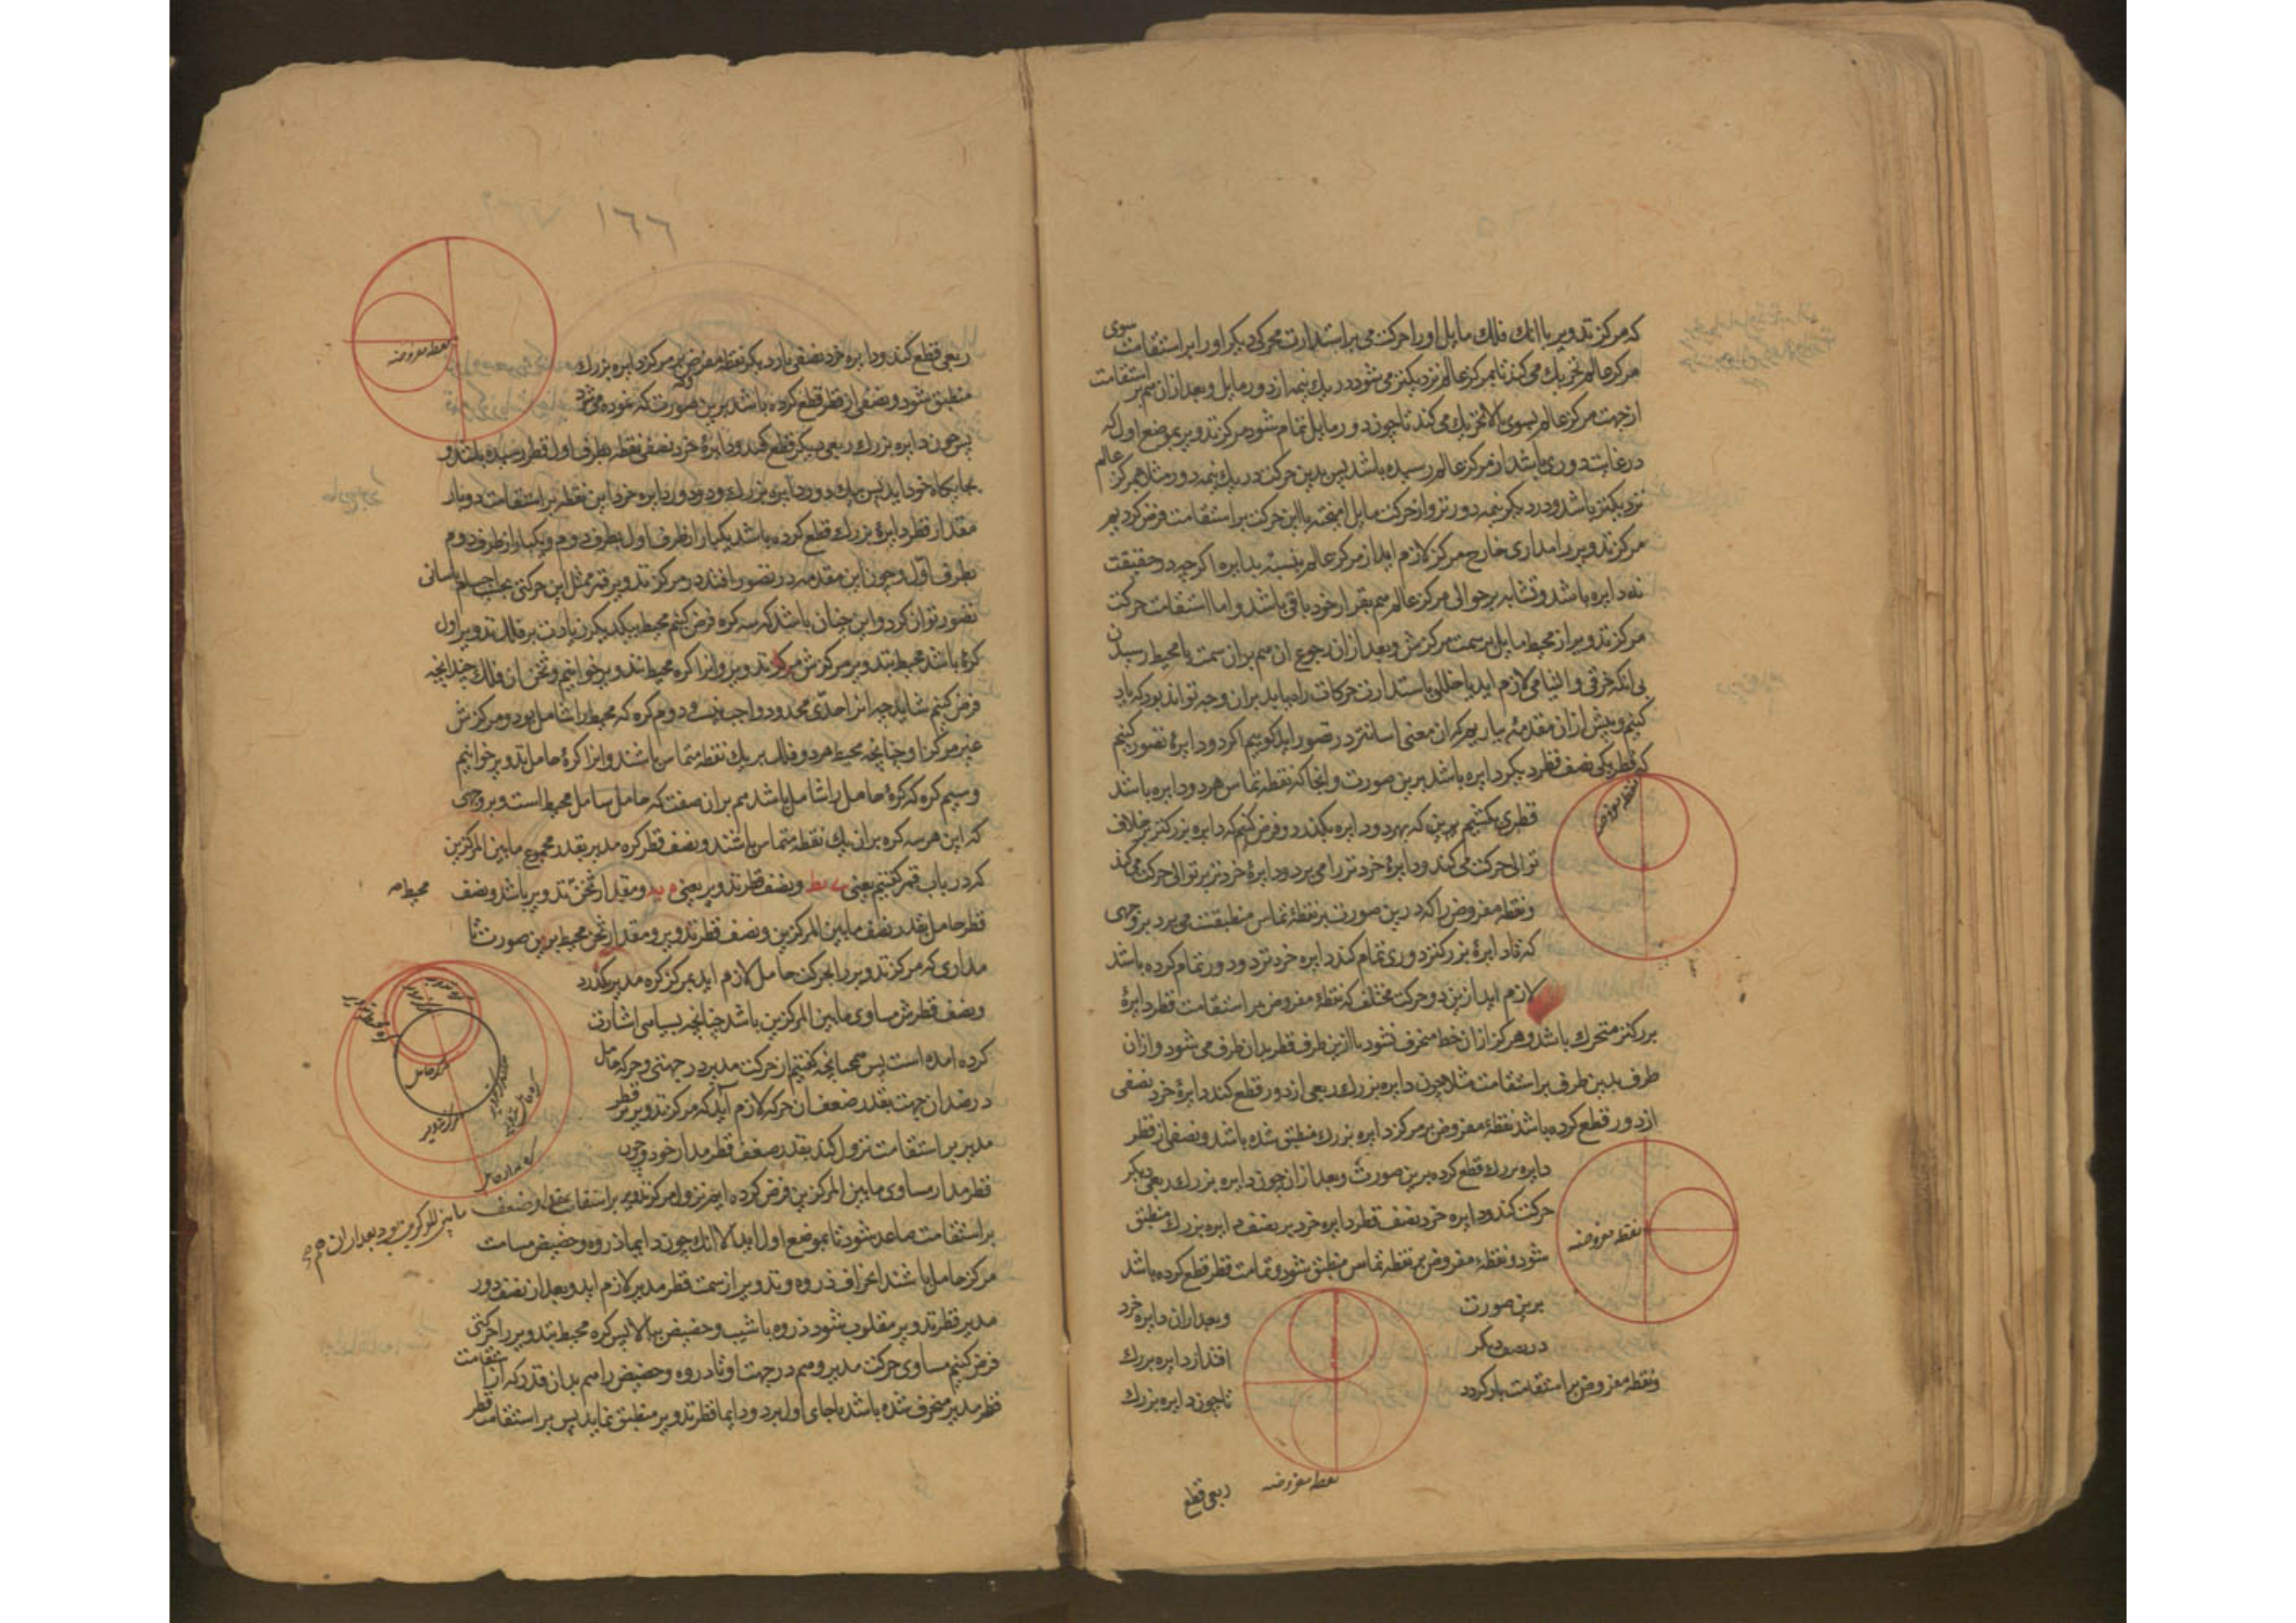 که مرکز تدویر با انک فلک مایل اورا حرکت می براستدارت محرکی دیکر اورا براستقامت سوی
مرکز عالم تحریک می کند تا بمرکز عالم نزدیکتر می شود در یک نیمه از دور مایل و بعد ازان هم بر استقامت
از جهت مرکز عالم بسوی بالا تحریک می کند تا چون دور مایل تمام شود مرکز تدویر بموضع اول که
در غایت دوری باشد از مرکز عالم رسیده باشد پس بدین حرکت در یک نیمه دور مثلا بمرکز عالم
نزدیکتر باشد و در دیکر نیمه دورتر و از حرکت مایل امیخته با این حرکت بر استقامت فرض کردیم
مرکز تدویر را مداری خارج مرکز لازم اید از مرکز عالم بنسبة بدایره اکرچه در حقیقت
نه دایره باشد و تشابه بر حوالی مرکز عالم هم بقرار خود باقی باشد و اما استقامت حرکت
مرکز تدویر از محیط مایل بر سمت مرکزش و بعد ازان رجوع ان هم بران سمت با محیط رسیدن
بی انکه خرقی و التیامی لازم اید یا خللی باستدارت حرکات راه یابد بران وجه تواند بود که یاد
کنیم و پیش ازان مقدمهٔ بیاریم که ان معنی اسانتر در تصور اید کوییم اکر دو دایرهٔ تصور کنیم
که قطر یکی نصف قطر دیکر دایره باشد برین صورت و انجا که نقطه تماس هر دو دایره باشد
نقطه مفروضه
قطری بکشیم برین که بهر دو دایره بکذرد و فرض کنیم که دایره بزرکتر بر خلاف
توالی حرکت می کند و دایرهٔ خردتر را می برد و دایرهٔ خردتر بر توالی حرکت می کند
و نقطه مفروض را که درین صورت بر نقطهٔ تماس منطبقست می برد بر وجهی
که تا دایرهٔ بزرکتر دوری تمام کند دایره خردتر دو دور تمام کرده باشد
لازم اید ازین دو حرکت مختلف که نقطهٔ مفروض بر استقامت قطر دایرهٔ
بزرکتر متحرک باشد و هرکز ازان خط منحرف نشود با ازین طرف قطر بدان طرف می شود و ازان
طرف بدین طرف بر استقامت مثلا چون دایره بزرک ربعی از دور قطع کند دایرهٔ خرد نصفی
از دور قطع کرده باشد نقطهٔ مفروض بر مرکز دایره بزرک منطبق شده باشد و نصفی از قطر
دایره بزرک قطع کرده برین صورت و بعد ازان چون دایره بزرک ربعی دیکر
حرکت کند و دایره خرد نصف قطر دایره خرد بر نصف دایره بزرک منطبق
نقطه مفروضه
شود و نقطهٔ مفروض بر نقطه تماس منطبق شود و تمامت قطر قطع کرده باشد
برین صورت
و بعد ازان دایره خرد
در نصف دیکر
افتد از دایره بزرک
و نقطه مفروض بر استقامت باز کردد
تا چون دایره بزرک
نقطه مفروضه
ربعی قطع
١٦٦
نقطه مفروضه
ربعی قطع کند و دایره خرد نصفی بار دیکر نقطه مفروض بر مرکز دایره بزرک
منطبق شود و نصفی از قطر قطع کرده باشد برین صورت که نموده می شود
پس چون دایره بزرک ربعی دیکر قطع کند و دایرهٔ خرد نصفی نقطه بطرف اول قطر رسیده باشد و
بجایکاه خود اید پس بیک دور دایره بزرک و دو دور دایره خرد این نقطه بر استقامت دو بار
مقدار قطر دایرهٔ بزرک قطع کرده باشد یکبار از طرف اول بطرف دوم و یکبار از طرف دوم
بطرف اول و چون این مقدمه در تصور افتد در مرکز تدویر قمر مثل این حرکتی بحسب اسانی
تصور توان کرد و این چنان باشد که سه کره فرض کنیم محیط بیکدیکر زیادت بر فلک تدویر اول
کرهٔ باشد محیط بتدویر مرکزش مرکز تدویر و انرا کره محیط تدویر خوانیم و ثخن ان فلک چندانچه
فرض کنیم شاید چه انرا حدی محدود واجب نیست و دوم کره که محیط را شامل بود و مرکزش
غیر مرکز او چنانچه محیط هر دو فلک بر یک نقطه متماس باشند و انرا کرهٔ حامل تدویر خوانیم
و سیم کره که کرهٔ حامل را شامل باشد هم بران صفت که حامل شامل محیط است و بر وجهی
که این هر سه کره بران یک نقطه متماس باشند و نصف قطر کره مدیر بقدر مجموع مابین المرکزین
که در باب قمر کفتیم یعنی ی یط و نصف قطر تدویر یعنی ه یه و مقدار ثخن تدویر باشد و نصف
محیط
قطر حامل بقدر نصف مابین المرکزین و نصف قطر تدویر و مقدار ثخن محیط برین صورت تا
مداری که مرکز تدویر را بحرکت حامل لازم اید بمرکز کره مدیر کذرد
و نصف قطرش مساوی مابین المرکزین باشد چنانچه بسیاهی اشارت
کرده امده است پس همچنانچه کفتیم از حرکت مدیر در جهتی و حرکت حامل
در ضد ان جهت بقدر ضعف ان حرکة لازم آید که مرکز تدویر بر قطر
مدیر بر استقامت نزول کند بقدر ضعف قطر مدار خود و چون
قطر مدار مساوی مابین المرکزین فرض کرده ایم نزول مرکز تدویر بر استقامت بمقدار ضعف
مابین المرکزین بود بعد ازان هم
بر استقامت صاعد شود تا بموضع اول اید الا انک چون دایما ذروه و حضیض مسامت
مرکز حامل باشند انحراف ذروه و تدویر از سمت قطر مدیر لازم اید و بعد از نصف دور
مدیر قطر تدویر مقلوب شود ذروه با شیب و حضیض ببالا پس کره محیط تدویر را حرکتی
فرض کنیم مساوی حرکت مدیر و هم در جهت او تا ذروه و حضیض را هم بدان قدر که از استقامت
قطر مدیر منحرف شده باشد با جای اول برد و دایما قطر تدویر منطبق نماید پس بر استقامت قطر
مرکز حامل
مرکز تدویر